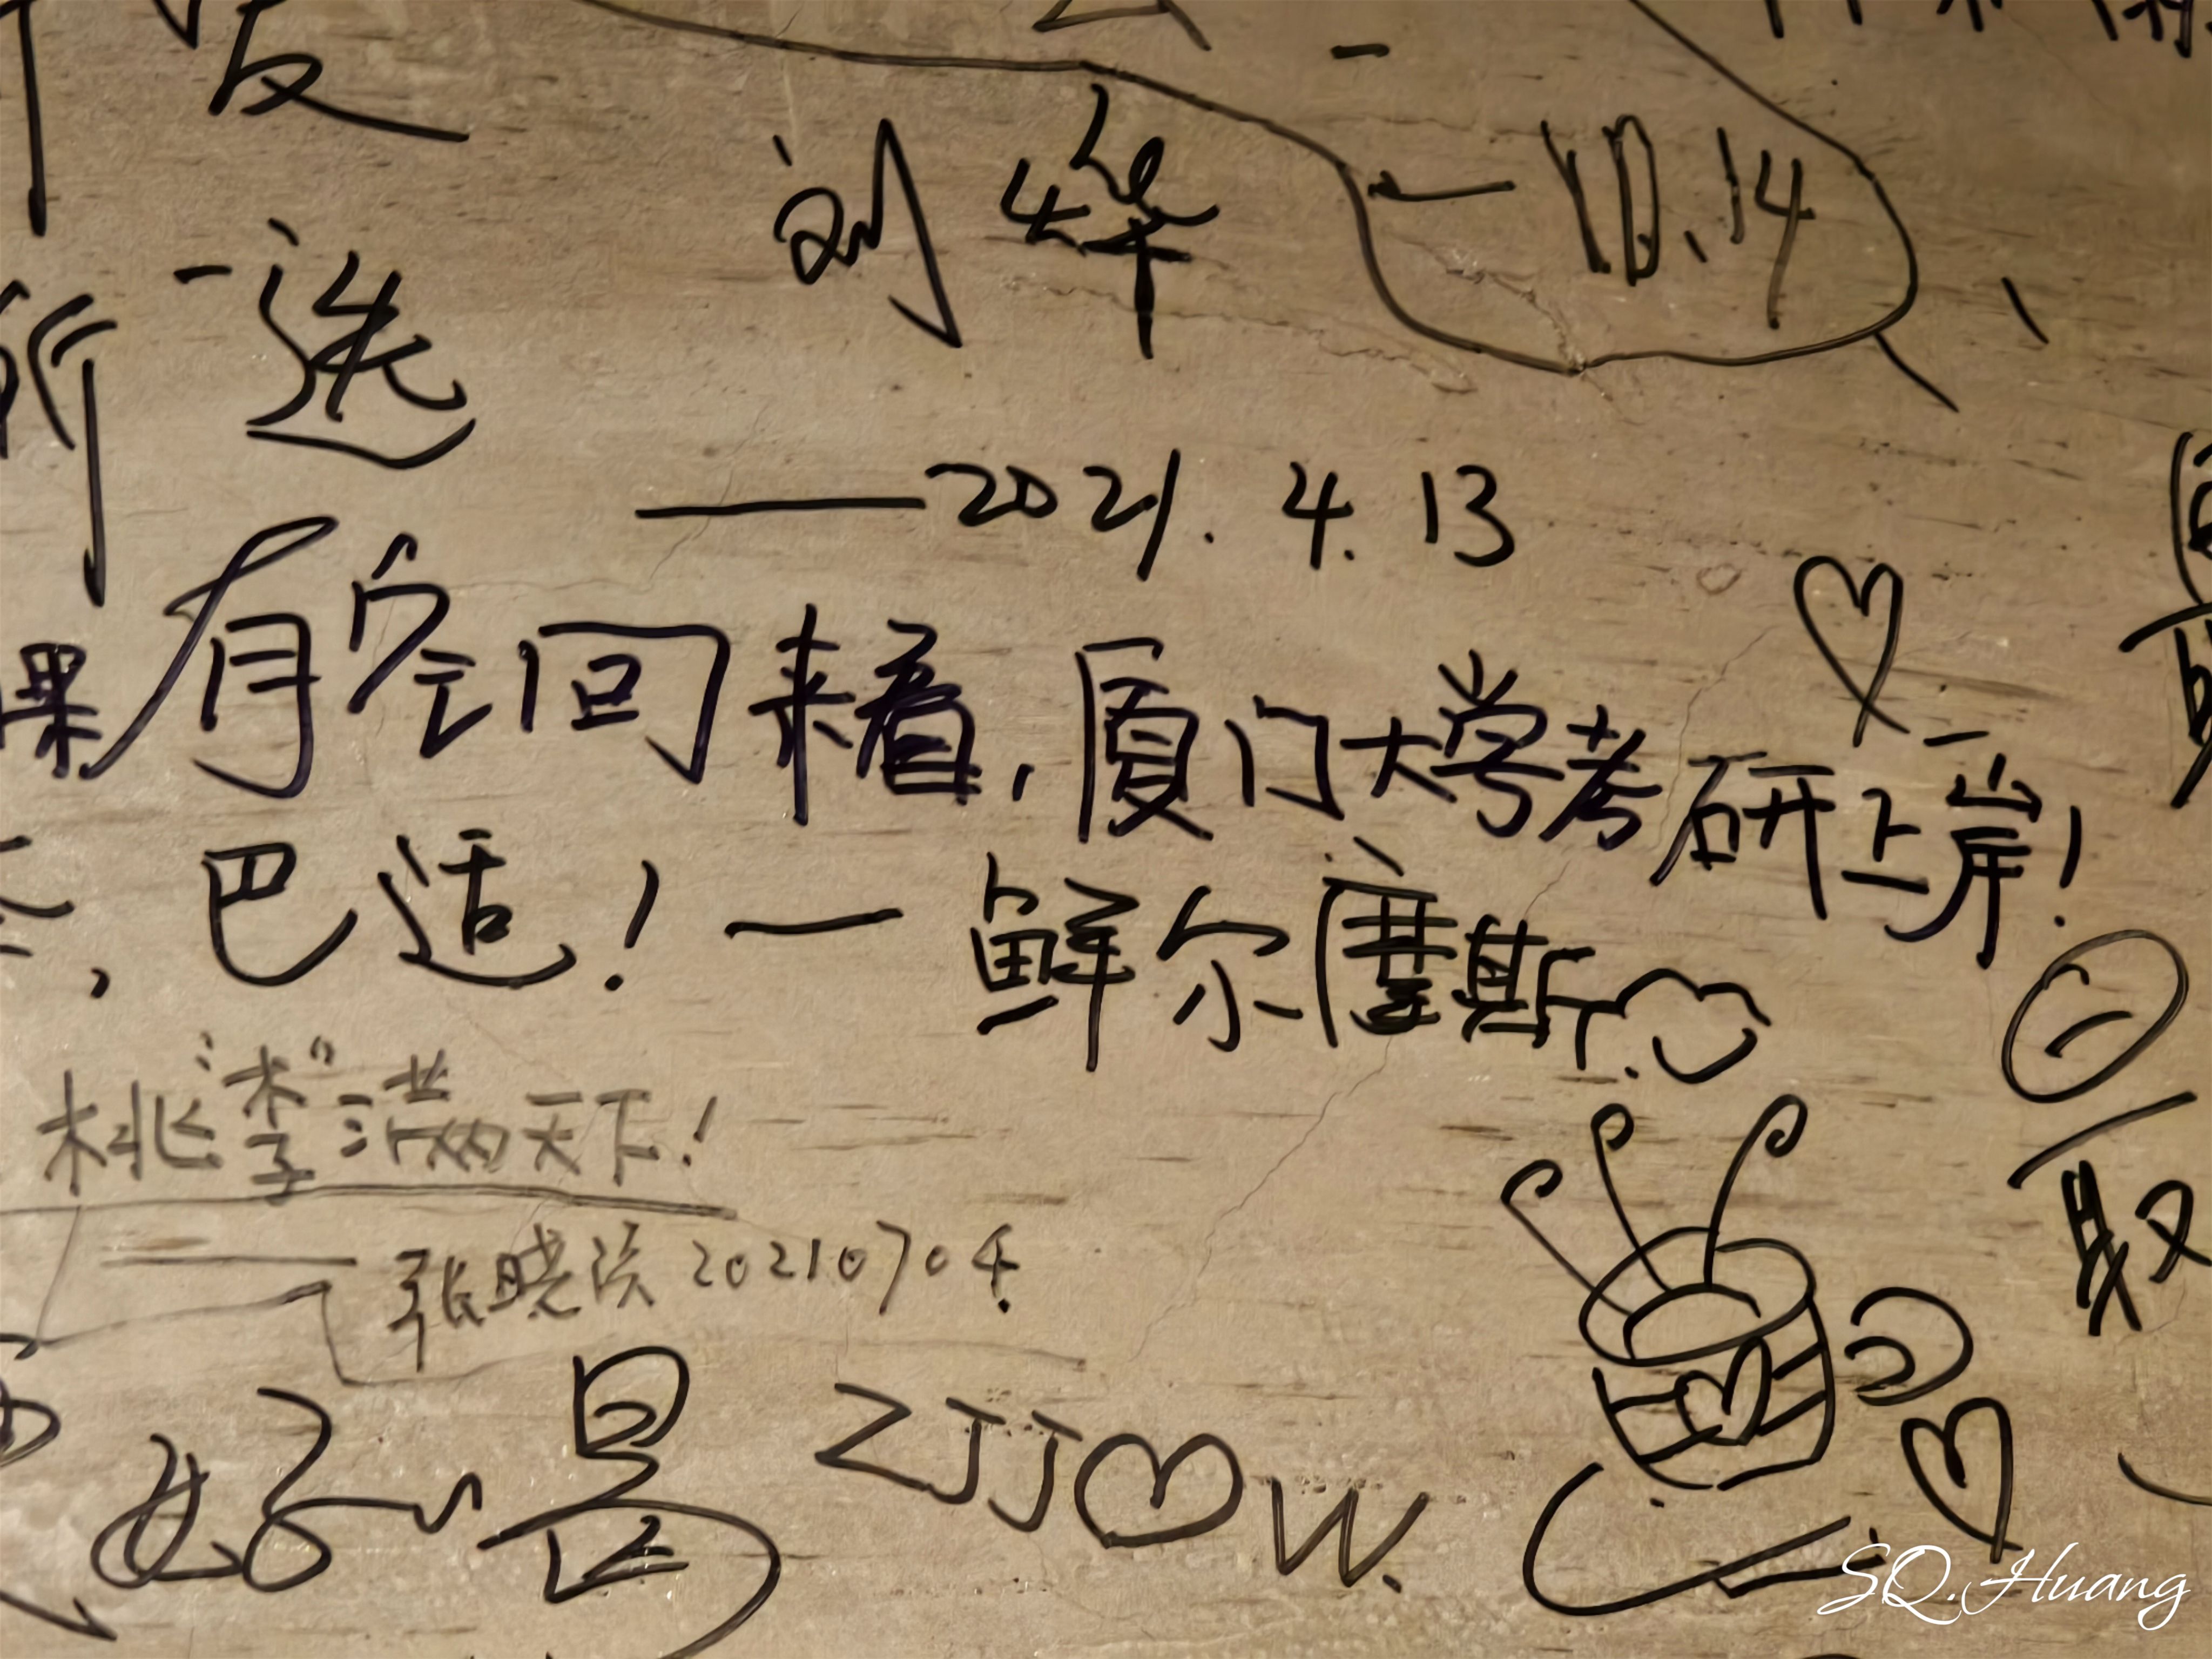 友
10.14
刘烨
所选
——2021.4.13
有空回来看,厦门大学考研上岸!
巴适!—鲜尔摩斯
桃"李"满天下!
——张晓 20210704
好
ZJJ♡W.
取
SQ.Huang